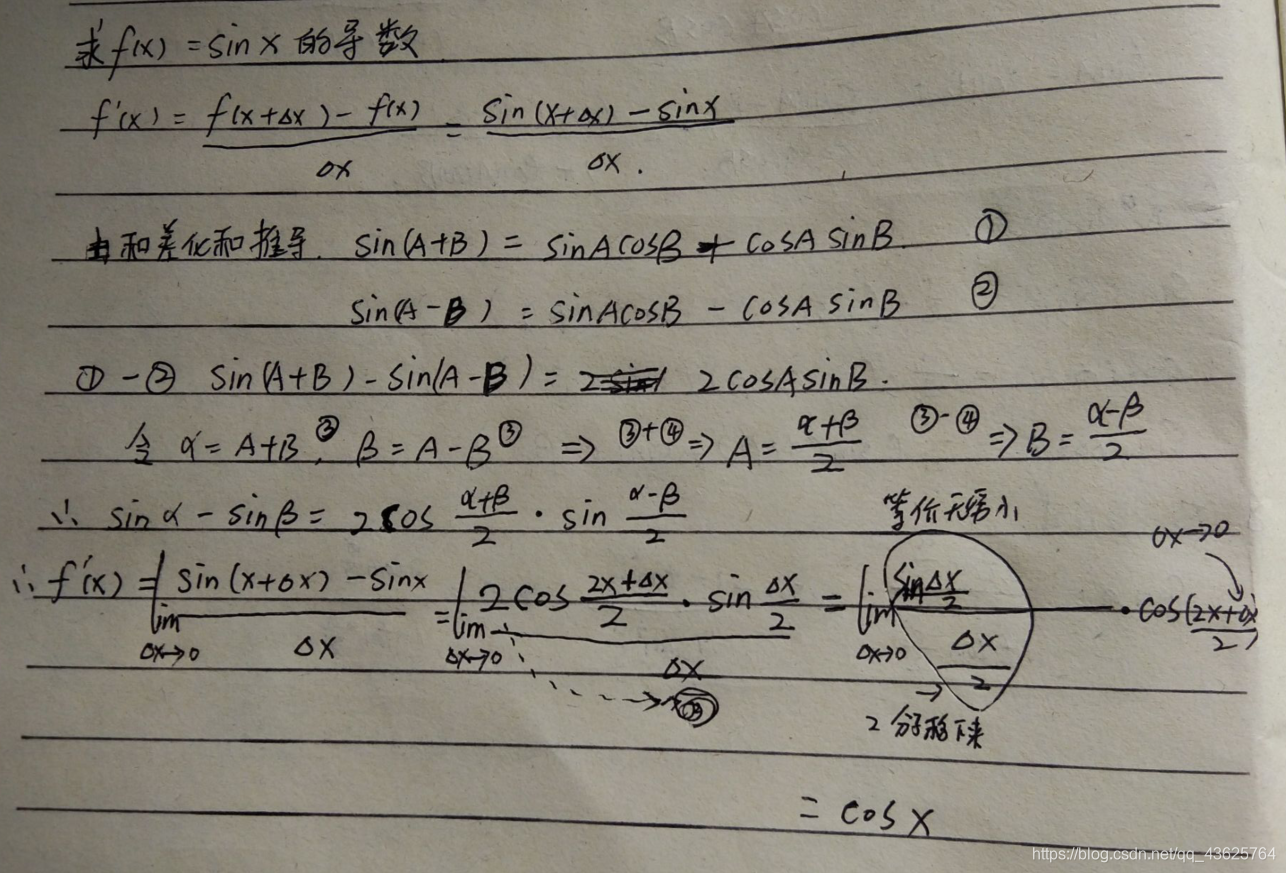 求 f(x) = sin x 的导数
f'(x) = \frac{f(x+Δx) - f(x)}{Δx} = \frac{sin(x+Δx) - sinx}{Δx}.
由和差化和推导. sin(A+B) = sinAcosB + cosAsinB. ①
sin(A-B) = sinAcosB - cosAsinB ②
①-② sin(A+B) - sin(A-B) = 2cosAsinB.
令 α = A+B ③, β = A-B ③ ⇒ ③+④ ⇒ A = \frac{α+β}{2} ③-④ ⇒ B = \frac{α-β}{2}
∴ sinα - sinβ = 2cos \frac{α+β}{2} · sin \frac{α-β}{2}
等价无穷小
Δx→0
∴ f'(x) = lim_{Δx→0} \frac{sin(x+Δx) - sinx}{Δx} = lim_{Δx→0} \frac{2cos \frac{2x+Δx}{2} · sin \frac{Δx}{2}}{Δx} = lim_{Δx→0} \frac{sin \frac{Δx}{2}}{\frac{Δx}{2}} · cos(\frac{2x+Δx}{2})
→ 2分子移下来
= cosx
https://blog.csdn.net/qq_43625764